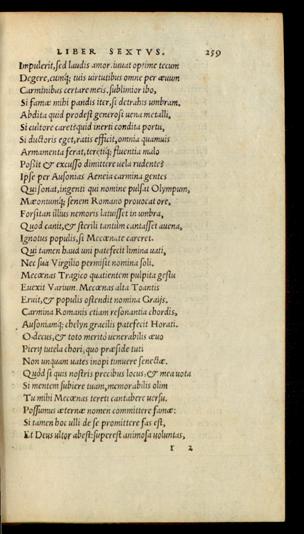 LIBER SEXTVS. 259
Impulerit, sed laudis amor. iuuat optime tecum
Degere, cunq; tuis uirtutibus omne per æuum
Carminibus certare meis. sublimior ibo,
Si famæ mihi pandis iter, si detrahis umbram.
Abdita quid prodest generosi uena metalli,
Si cultore caret? quid inerti condita portu,
Si ductoris eget, ratis efficit, omnia quamuis
Armamenta ferat, teretiq; fluentia malo
Possit & excusso dimittere uela rudente?
Ipse per Ausonias Aeneia carmina gentes
Qui sonat, ingenti qui nomine pulsat Olympum,
Mæoniumq; senem Romano prouocat ore,
Forsitan illius nemoris latuisset in umbra,
Quod canit, & sterili tantum cantasset auena,
Ignotus populis, si Mecœnate careret.
Qui tamen haud uni patefecit limina uati,
Nec sua Virgilio permisit nomina soli.
Mecœnas Tragico quatientem pulpita gestu
Euexit Varium. Mecœnas alta Toantis
Eruit, & populis ostendit nomina Graijs.
Carmina Romanis etiam resonantia chordis,
Ausoniamq; chelyn gracilis patefecit Horati.
O decus, & toto merito uenerabilis æuo
Pierij tutela chori, quo præside tuti
Non unquam uates inopi timuere senectæ.
Quòd si quis nostris precibus locus, & mea uota
Si mentem subiere tuam, memorabilis olim
Tu mihi Mecœnas tereti cantabere uersu.
Possumus æternæ nomen committere famæ:
Si tamen hoc ulli de se promittere fas est,
Et Deus ultor abest: superest animosa uoluntas,
2